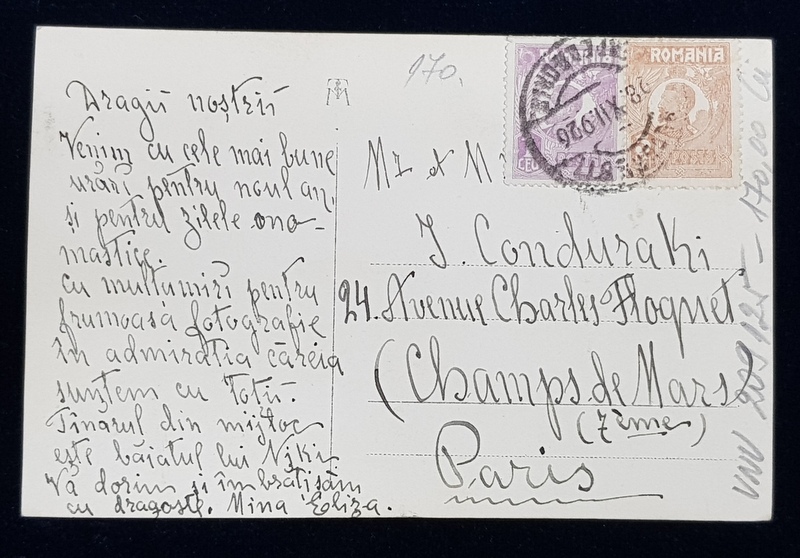 Dragii noștrii
Venim cu cele mai bune
urări pentru noul an,
și pentru zilele ono-
mastice.
cu multumiri pentru
frumoasa fotografie
în admiratia căreia
suntem cu totii.
Tînărul din mijloc
este băiatul lui Niki
Vă dorim și îmbrătisăm
cu dragoste. Mina Eliza.
170.
ROMANIA
28.XII.926
Mr et M
J. Conduraki
24. Avenue Charles Floquet
(Champs de Mars)
(7ème)
Paris
209125 - 170,00